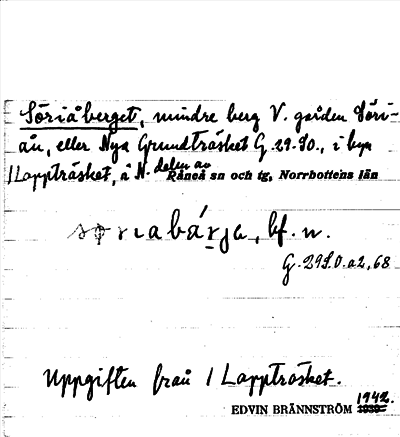 Söriåberget, mindre berg V. gården Söri-
ån, eller Nya Grundträsket G.29.S0., i byn
1 Lappträsket, å N. delen av
Råneå sn och tg, Norrbottens län
bf. n.
G.29S.0.a2,68
Uppgiften från 1 Lappträsket.
1942.
EDVIN BRÄNNSTRÖM 1939